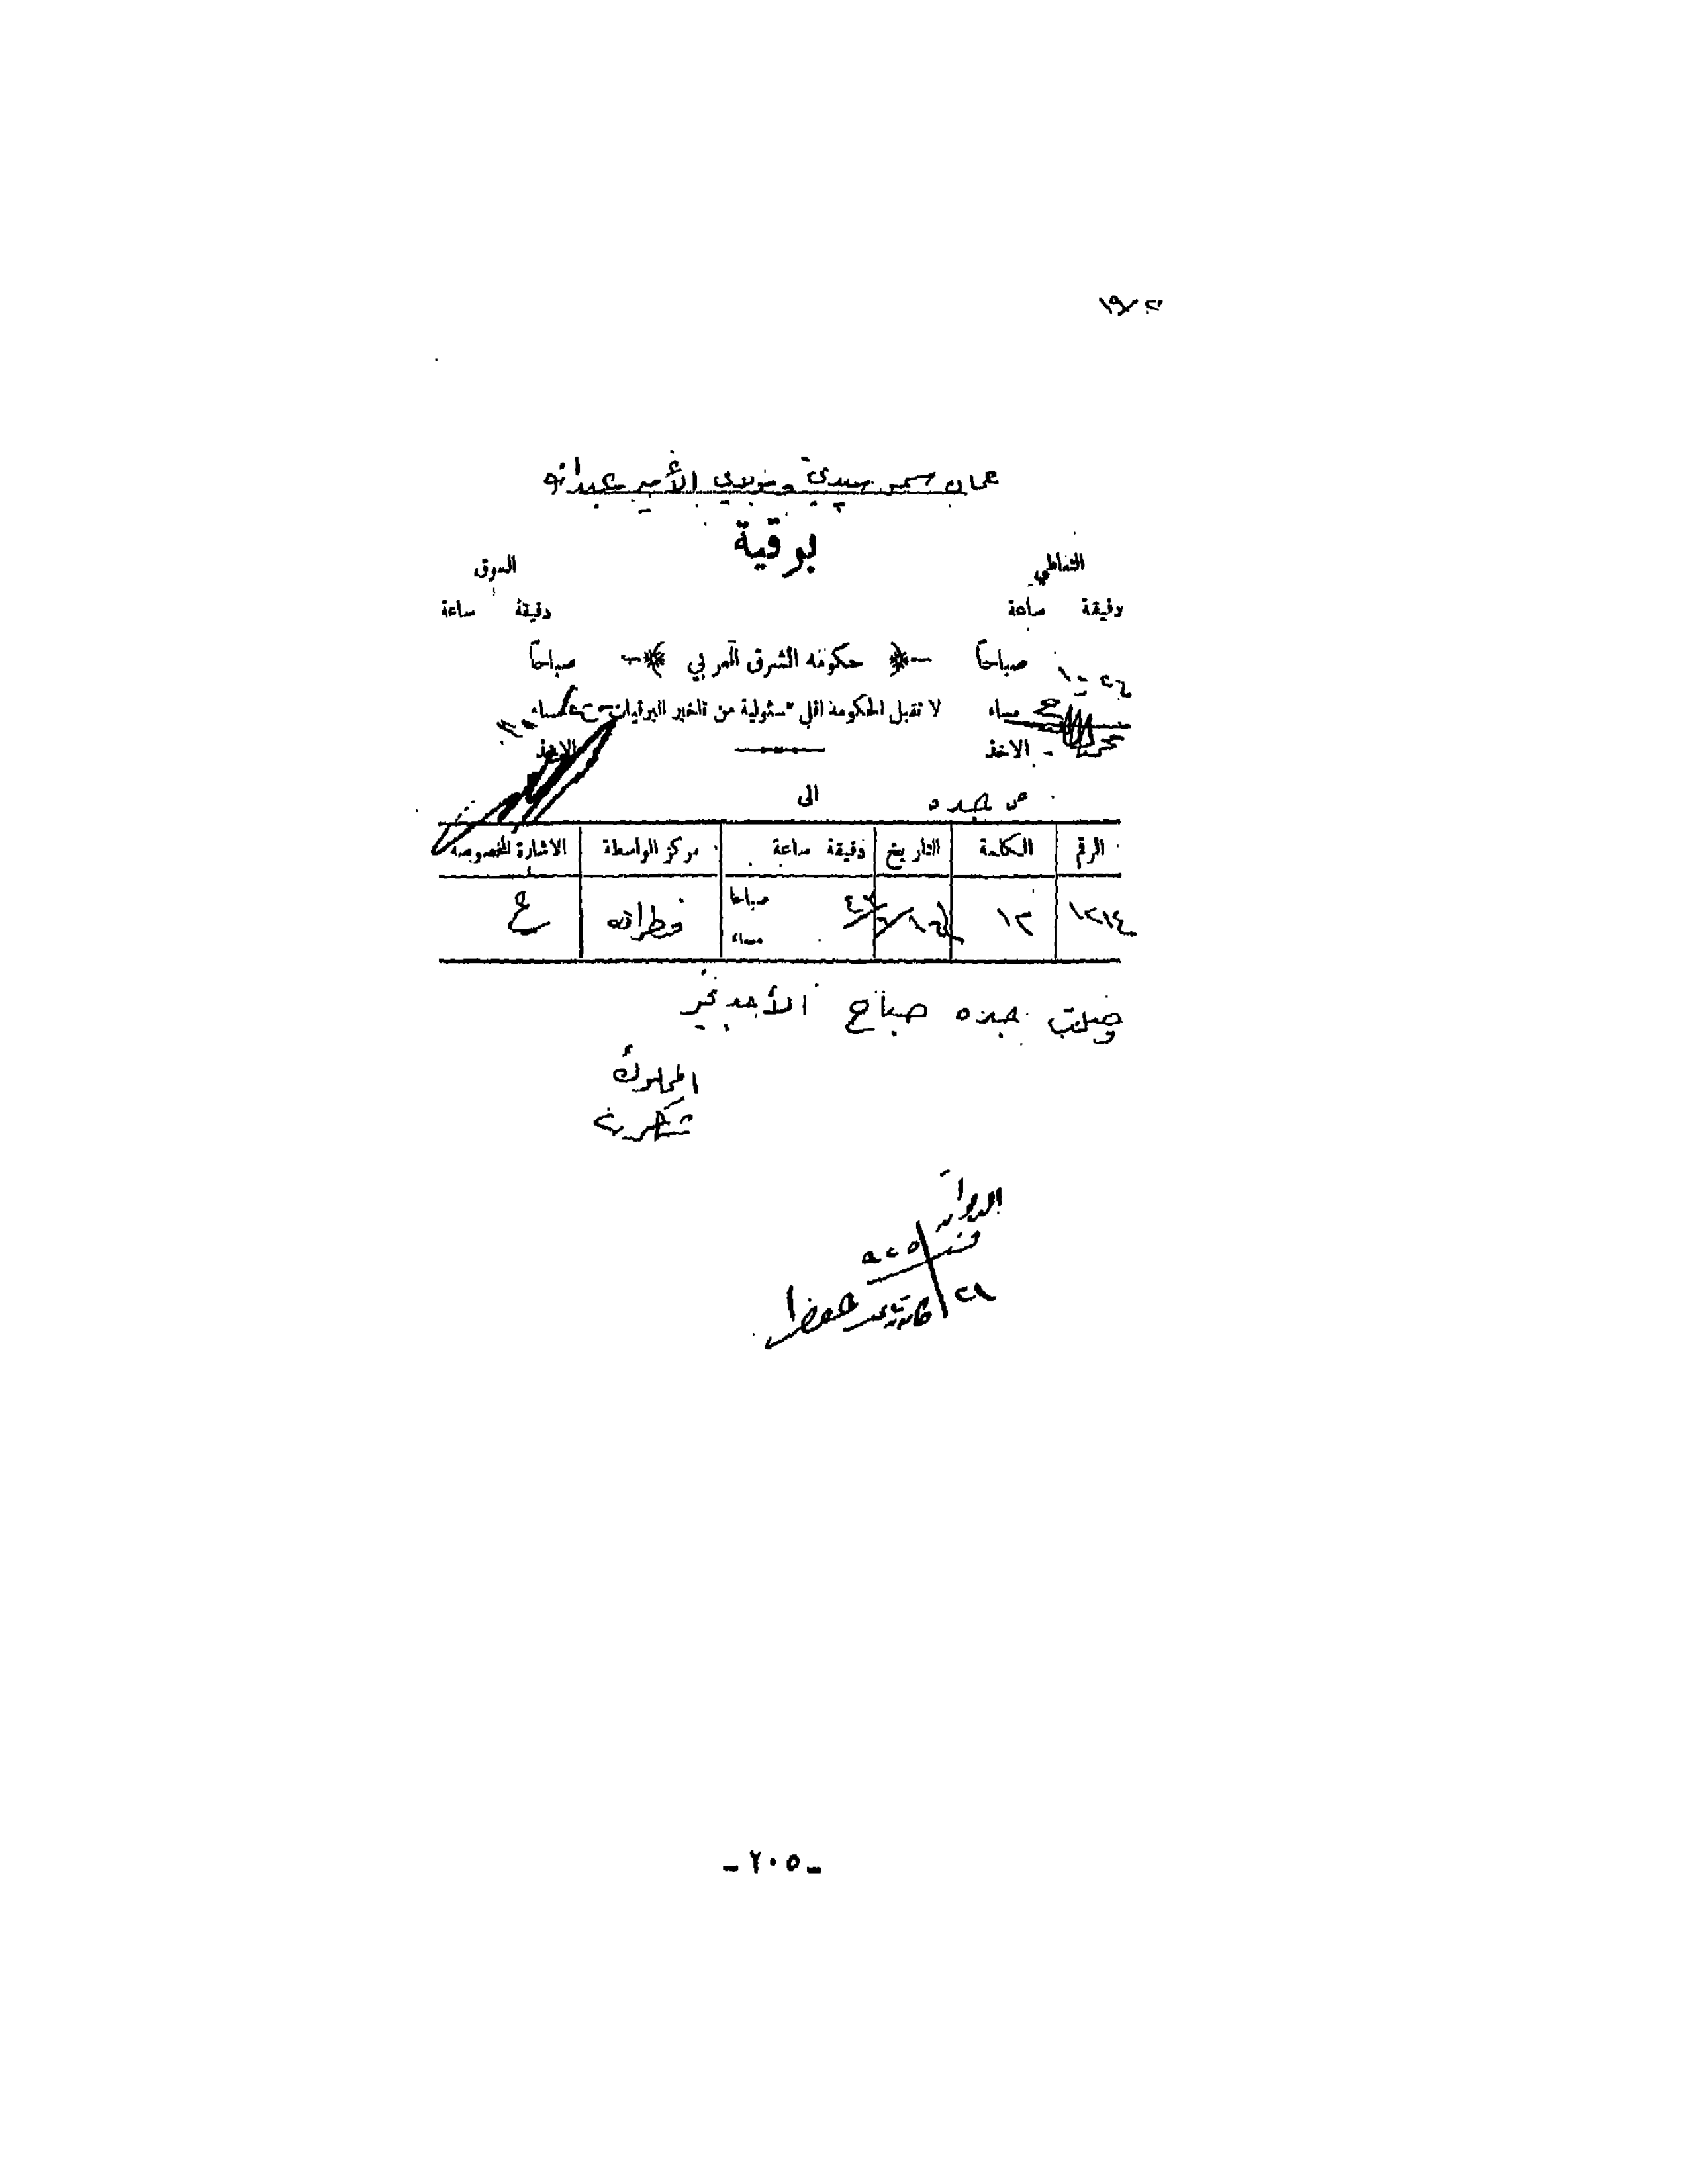 عمان سمو سيدي ومولاي الأمير عبدالله
برقية
التعاطي السوق
دقيقة ساعة دقيقة ساعة
صباحاً حكومة الشرق العربي صباحاً
مساء لا تقبل الحكومة اقل مسئولية من تأخير البرقيات مساء
الاخذ الاخذ
من جده الى
الرقم الكلمة التاريخ دقيقة ساعة مركز الواسطة الاشارة المخصوصة
١٢١٤ ١٣ صباحا مساء قطرانه ع
وصلت جده صباح الأحد بخير
المملوك
الديوان
٢٨
حفظ
- ٢٠٥ -